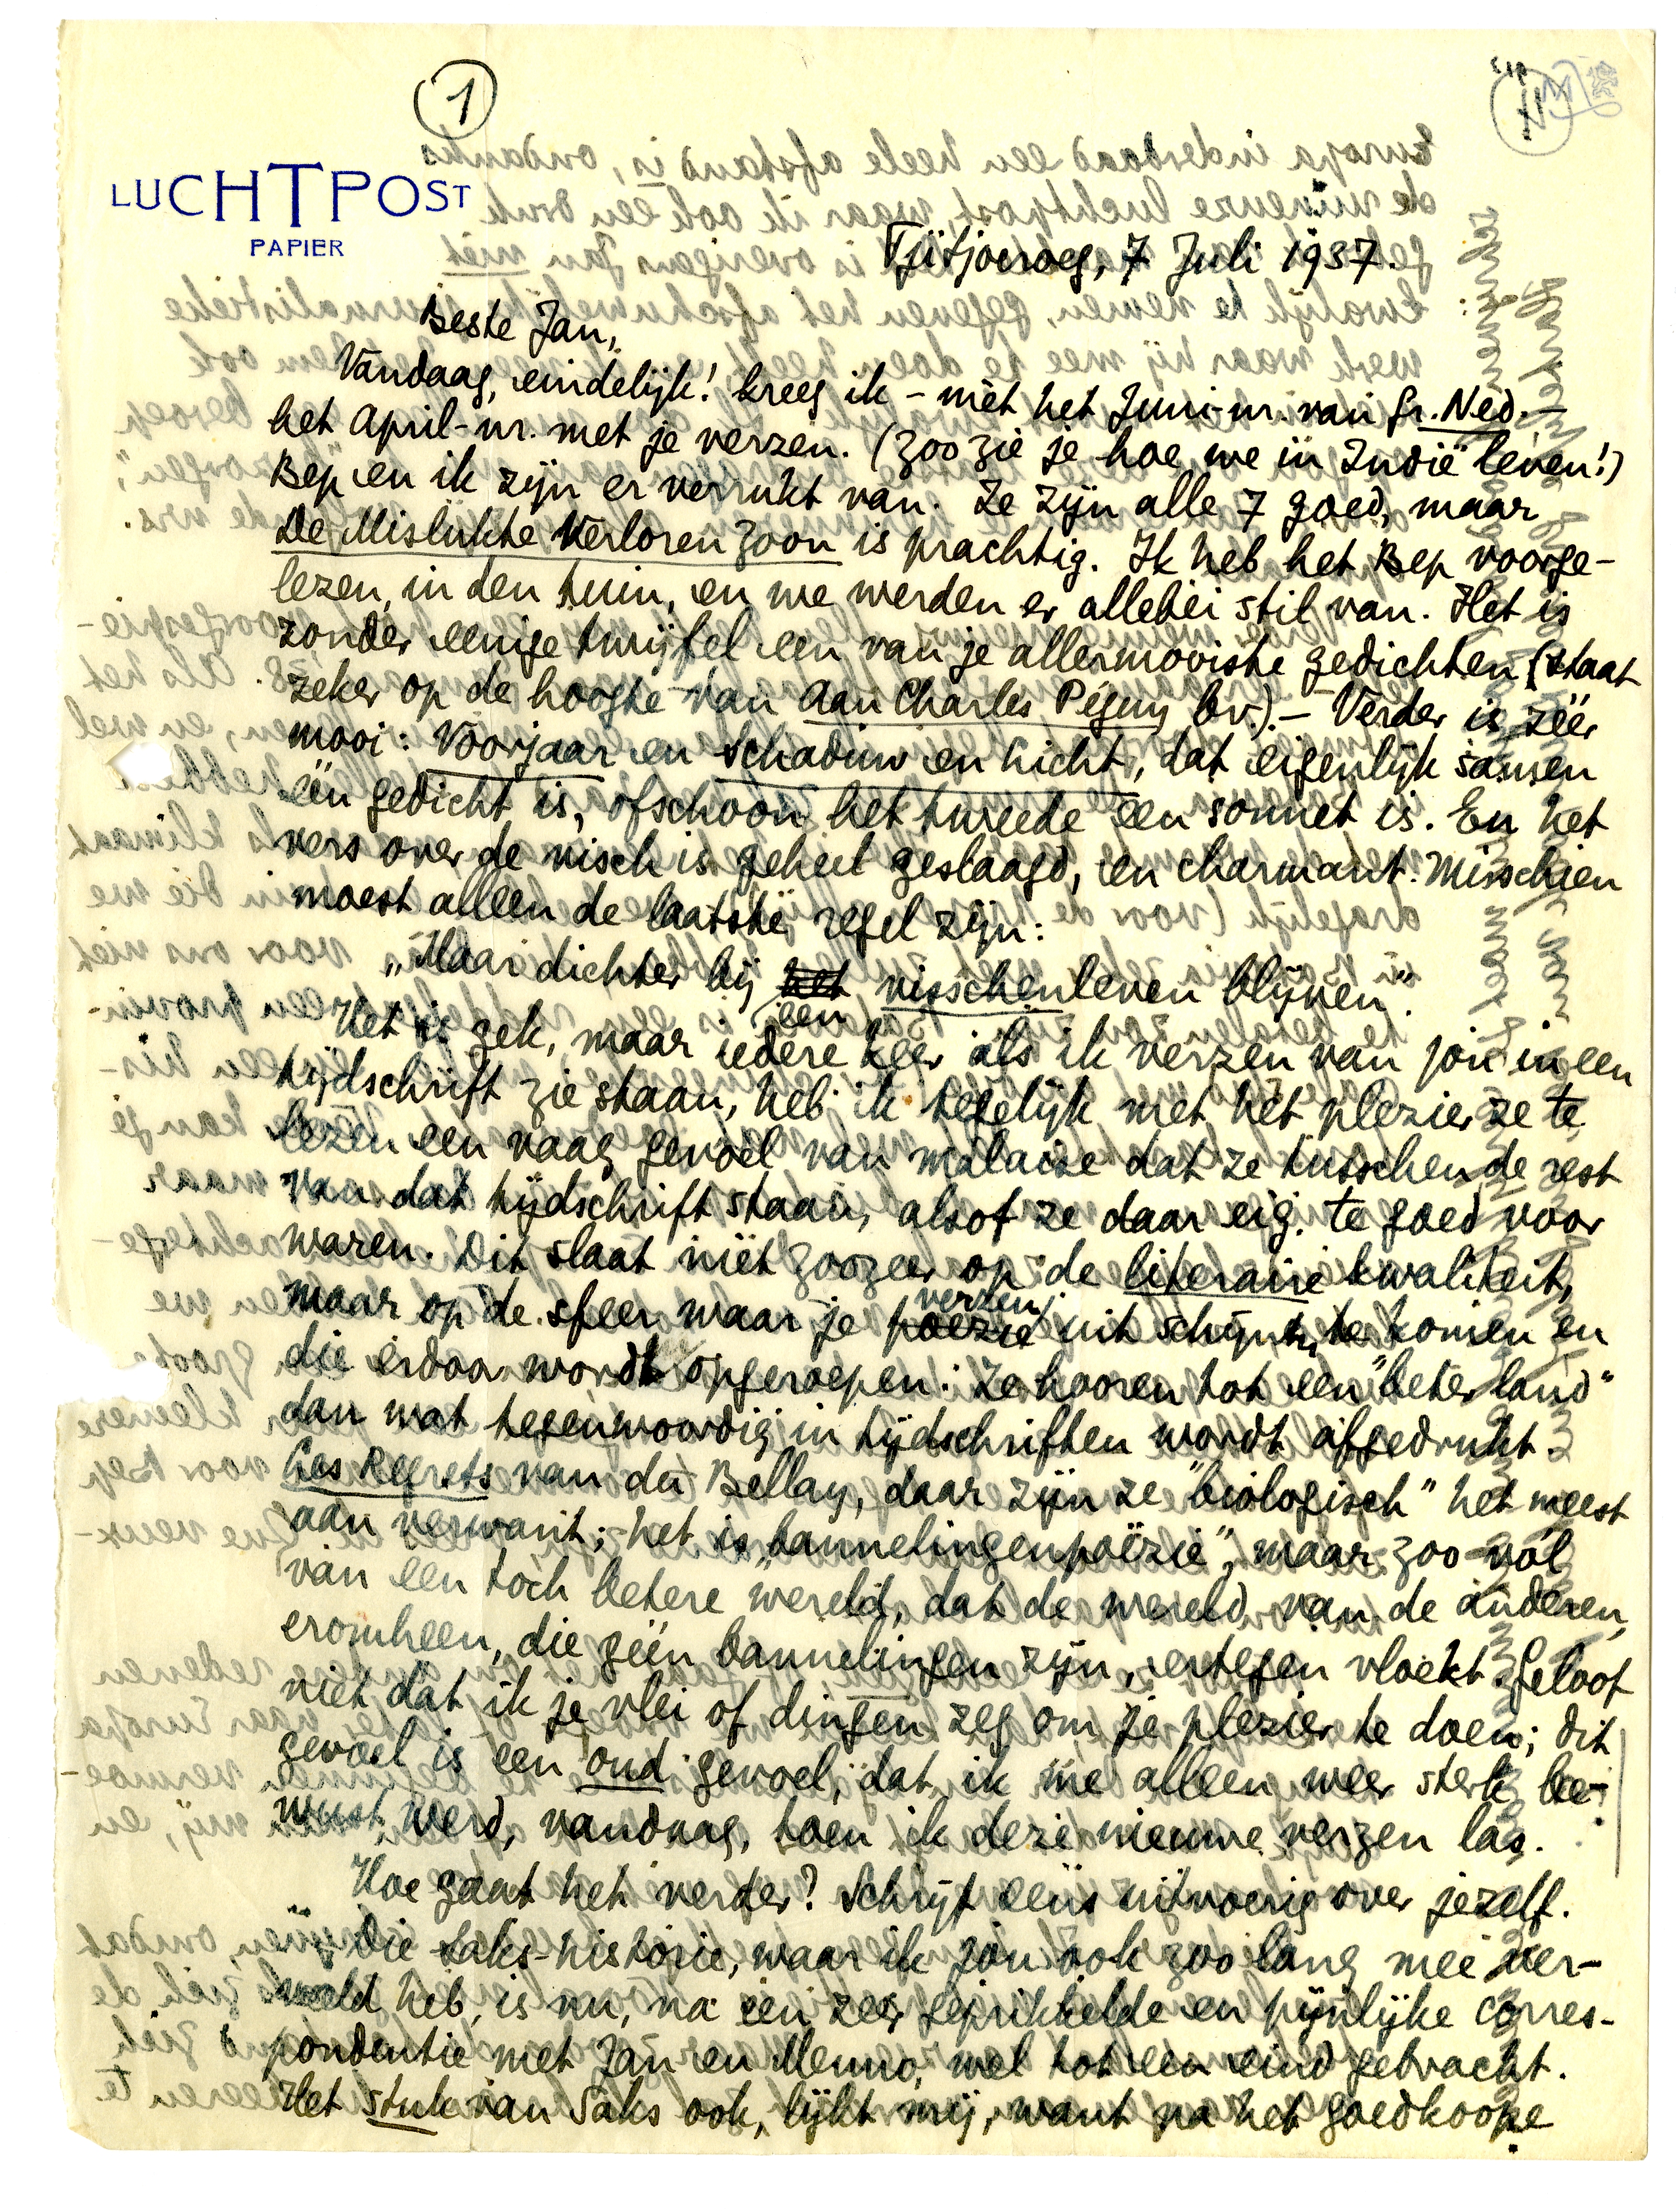 1
LUCHTPOST
PAPIER
Tjitjoeroeg, 7 Juli 1937.
Beste Jan,
Vandaag, eindelijk! kreeg ik – mèt het Juni-nr. van Gr. Ned. –
het April-nr. met je verzen. (Zoo zie je hoe we in Indië leven!)
Bep en ik zijn er verrukt van. Ze zijn alle 7 goed, maar
De Mislukte Verloren Zoon is prachtig. Ik heb het Bep voorge-
lezen, in den tuin, en we werden er allebei stil van. Het is
zonder eenige twijfel een van je allermooiste gedichten (staat
zeker op de hoogte van Aan Charles Péguy bv.). – Verder is zéér
mooi: Voorjaar en Schaduw en licht, dat eigenlijk samen
één gedicht is, ofschoon het tweede een sonnet is. En het
vers over de visch is geheel geslaagd, en charmant. Misschien
moest alleen de laatste regel zijn:
„Maar dichter bij het een visschenleven blijven".
Het is gek, maar iedere keer als ik verzen van jou in een
tijdschrift zie staan, heb ik tegelijk met het plezier ze te
lezen een vaag gevoel van malaise dat ze tusschen de rest
van dat tijdschrift staan, alsof ze daar eig. te goed voor
waren. Dit slaat niet zoozeer op de literaire kwaliteit,
maar op de sfeer waar je poëzie verzen uit schijnen te komen en
die erdoor wordt opgeroepen. Ze hooren tot een "beter land"
dan wat tegenwoordig in tijdschriften wordt afgedrukt.
Les Regrets van du Bellay, daar zijn ze "biologisch" het meest
aan verwant; het is „bannelingenpoëzie", maar zoo vól
van een toch betere wereld, dat de wereld van de anderen,
eromheen, die géén bannelingen zijn, ertegen vloekt. Geloof
niet dat ik je vlei of dingen zeg om je plezier te doen; dit
gevoel is een oud gevoel, dat ik me alleen weer sterk be-
wust werd, vandaag, toen ik deze nieuwe verzen las.
Hoe gaat het verder? Schrijf eens uitvoerig over jezelf.
Die Saks-historie, waar ik jou ook zoo lang mee ver-
veeld heb, is nu, na een zeer geprikkelde en pijnlijke corres-
pondentie met Jan en Menno, wel tot een eind gebracht.
Het stuk van Saks ook, lijkt mij, want na het goedkoope